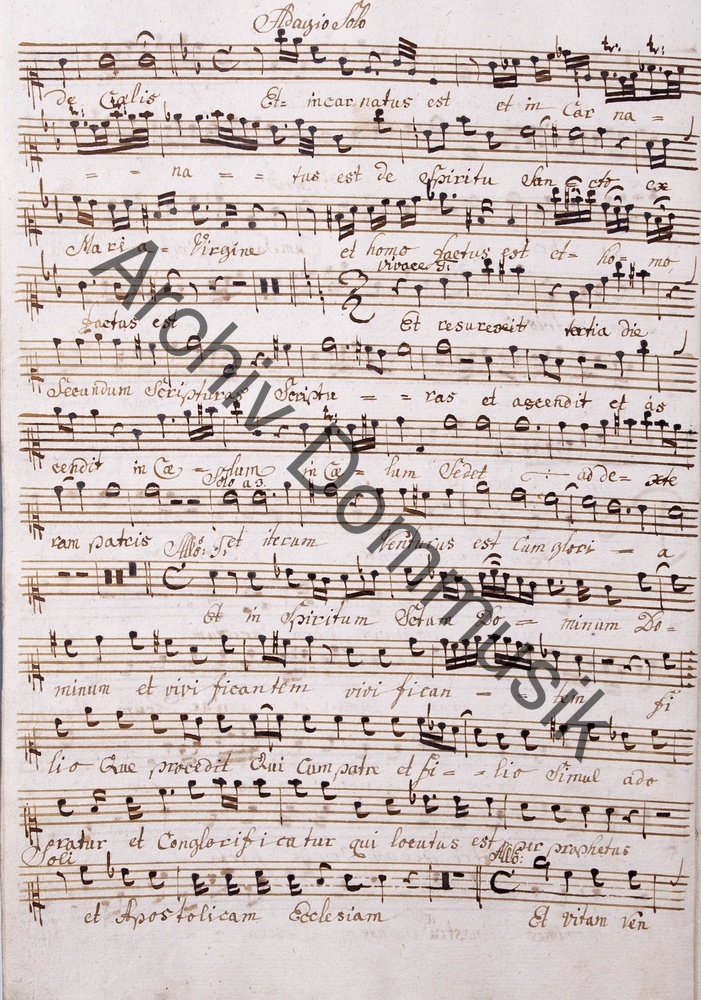 Adagio Solo
de Cælis Et- incarnatus est et in Car na =
= - = na = - = tus est de Spiritu San = cto ex
Maria- Virgine et homo factus est et- ho- mo
vivace
factus est Et resurexit tertia die
Secundum Scripturas Scriptu = - = ras et ascendit et as
cendit in Cæ - lum in Cæ - lum Sedet ad de=xte
Solo a 3.
ram patris et iterum Venturus est Cum glori - a
Allo:
Et in Spiritum Sctum Do - = minum Do=
minum et vivificantem vivifican - - tem fi
lio Que procedit Qui Cum patre et fi - - lio Simul ado
eratur et Conglorificatur qui locutus est per prophetas
Soli
Allo:
et Apostolicam Ecclesiam Et vitam ven
Archiv Dommusik